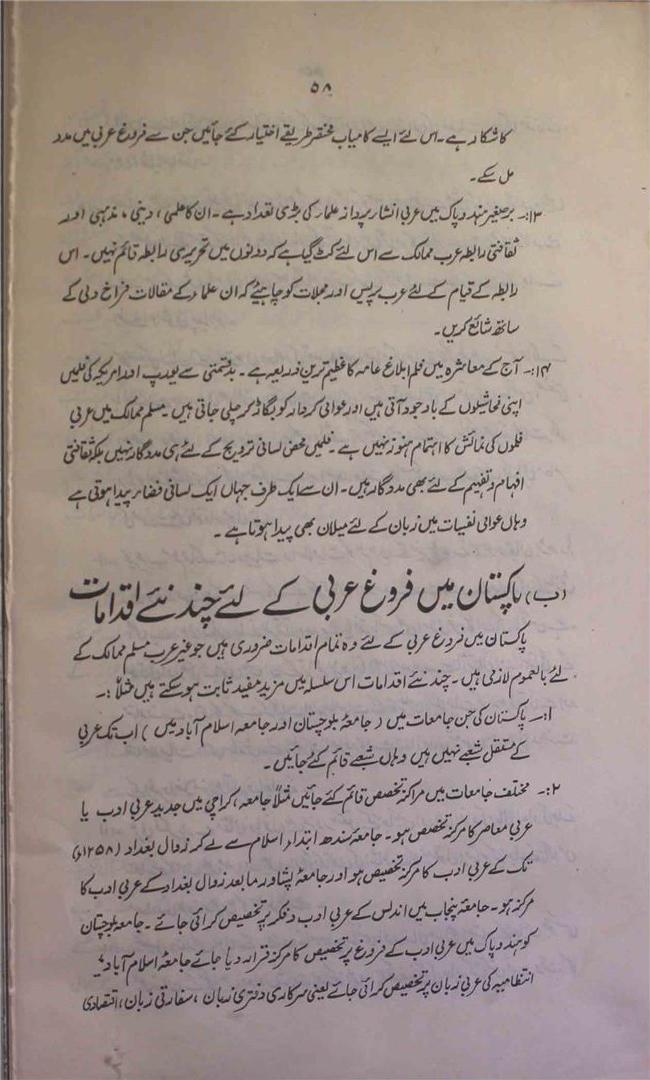 ۵۸
کا شکار ہے۔ اس لئے ایسے کامیاب مختصر طریقے اختیار کئے جائیں جن سے فروغ عربی میں مدد
مل سکے۔
۱۳:۔ برصغیر ہند و پاک میں عربی انشاء پرداز علماء کی بڑی تعداد ہے۔ ان کا علمی، دینی، مذہبی اور
ثقافتی رابطہ عرب ممالک سے اس لئے کٹ گیا ہے کہ دونوں میں تحریری رابطہ قائم نہیں۔ اس
رابطہ کے قیام کے لئے عرب پریس اور مجلات کو چاہیئے کہ ان علماء کے مقالات فراخ دلی کے
ساتھ شائع کریں۔
۱۴:۔ آج کے معاشرہ میں فلم ابلاغ عامہ کا عظیم ترین ذریعہ ہے۔ بدقسمتی سے یورپ اور امریکہ کی فلمیں
اپنی فحاشیوں کے باوجود آتی ہیں اور عوامی کردار کو بگاڑ کر چلی جاتی ہیں۔ مسلم ممالک میں عربی
فلموں کی نمائش کا اہتمام ہنوز نہیں ہے۔ فلمیں محض لسانی ترویج کے لئے ہی مددگار نہیں بلکہ ثقافتی
افہام و تفہیم کے لئے بھی مددگار ہیں۔ ان سے ایک طرف جہاں ایک لسانی فضاء پیدا ہوتی ہے
وہاں عوامی نفسیات میں زبان کے لئے میلان بھی پیدا ہوتا ہے۔
(ب) پاکستان میں فروغ عربی کے لئے چند نئے اقدامات
پاکستان میں فروغ عربی کے لئے وہ تمام اقدامات ضروری ہیں جو غیر عرب مسلم ممالک کے
لئے بالعموم لازمی ہیں۔ چند نئے اقدامات اس سلسلہ میں مزید مفید ثابت ہو سکتے ہیں مثلاً:۔
۱:۔ پاکستان کی جن جامعات میں (جامعۂ بلوچستان اور جامعہ اسلام آباد میں) اب تک عربی
کے مستقل شعبے نہیں ہیں وہاں شعبے قائم کئے جائیں۔
۲:۔ مختلف جامعات میں مراکز تخصص قائم کئے جائیں مثلاً جامعہ، کراچی میں جدید عربی ادب یا
عربی معاصر کا مرکز تخصص ہو۔ جامعۂ سندھ ابتداء اسلام سے لے کر زوال بغداد (۱۲۵۸ء)
تک کے عربی ادب کا مرکز تخصیص ہو اور جامعۂ پشاور ما بعد زوال بغداد کے عربی ادب کا
مرکز ہو۔ جامعۂ پنجاب میں اندلس کے عربی ادب و فکر پر تخصیص کرائی جائے۔ جامعہ بلوچستان
کو ہند و پاک میں عربی ادب کے فروغ پر تخصیص کا مرکز قرار دیا جائے جامعۂ اسلام آباد
انتظامیہ کی عربی زبان پر تخصیص کرائی جائے یعنی سرکاری دفتری زبان، سفارتی زبان، اقتصادی